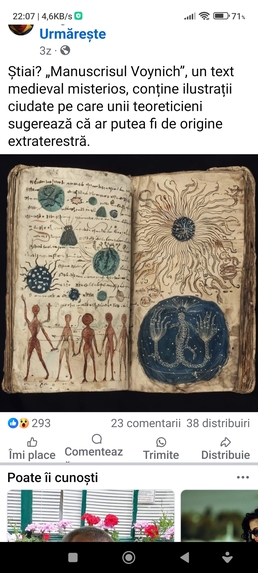 22:07 | 4,6KB/s
71%
Urmărește
3z
Știai? „Manuscrisul Voynich”, un text
medieval misterios, conține ilustrații
ciudate pe care unii teoreticieni
sugerează că ar putea fi de origine
extraterestră.
293
23 comentarii 38 distribuiri
Îmi place
Comentează
Trimite
Distribuie
Poate îi cunoști